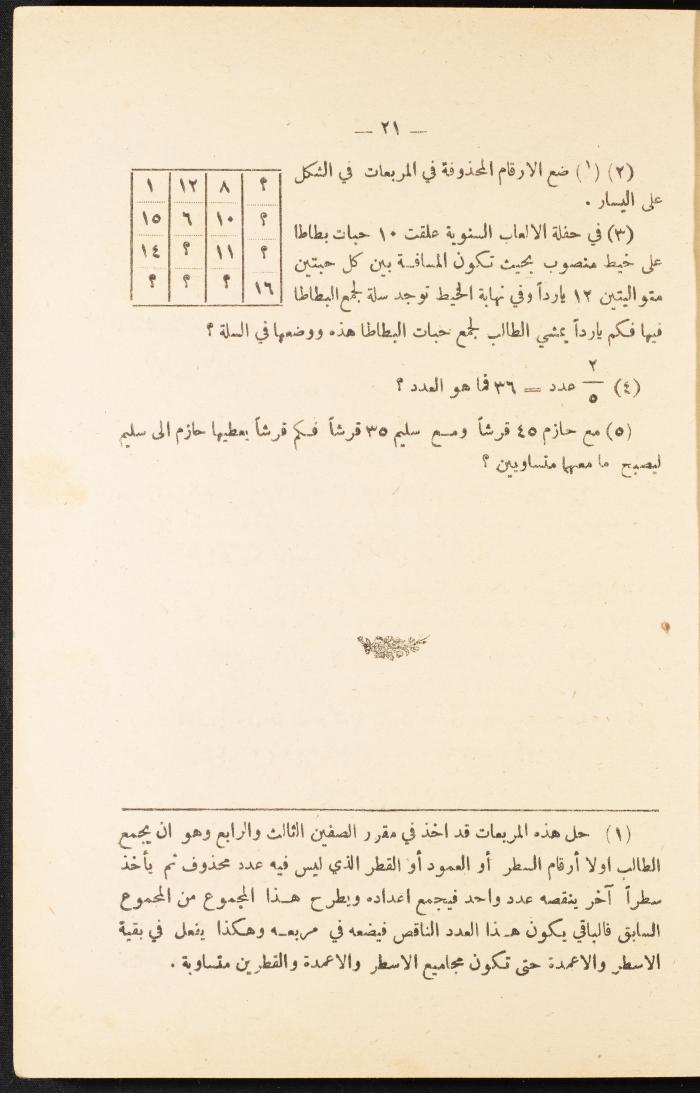 — ٢١ —
(٢) (١) ضع الارقام المحذوفة في المربعات في الشكل
على اليسار .
؟ ٨ ١٢ ١
؟ ١٠ ٦ ١٥
؟ ١١ ؟ ١٤
١٦ ؟ ؟ ؟
(٣) في حفلة الالعاب السنوية علقت ١٠ حبات بطاطا
على خيط منصوب بحيث تكون المسافة بين كل حبتين
متواليتين ١٢ يارداً وفي نهاية الخيط توجد سلة لجمع البطاطا
فيها فكم يارداً يمشي الطالب لجمع حبات البطاطا هذه ووضعها في السلة ؟
(٤) ٢/٥ عدد = ٣٦ فما هو العدد ؟
(٥) مع حازم ٤٥ قرشاً ومع سليم ٣٥ قرشاً فكم قرشاً يعطيها حازم الى سليم
ليصبح ما معهما متساويين ؟
(١) حل هذه المربعات قد اخذ في مقرر الصفين الثالث والرابع وهو ان يجمع
الطالب اولا أرقام السطر أو العمود أو القطر الذي ليس فيه عدد محذوف ثم يأخذ
سطراً آخر ينقصه عدد واحد فيجمع اعداده ويطرح هذا المجموع من المجموع
السابق فالباقي يكون هذا العدد الناقص فيضعه في مربعه وهكذا يفعل في بقية
الاسطر والاعمدة حتى تكون مجاميع الاسطر والاعمدة والقطرين متساوية .